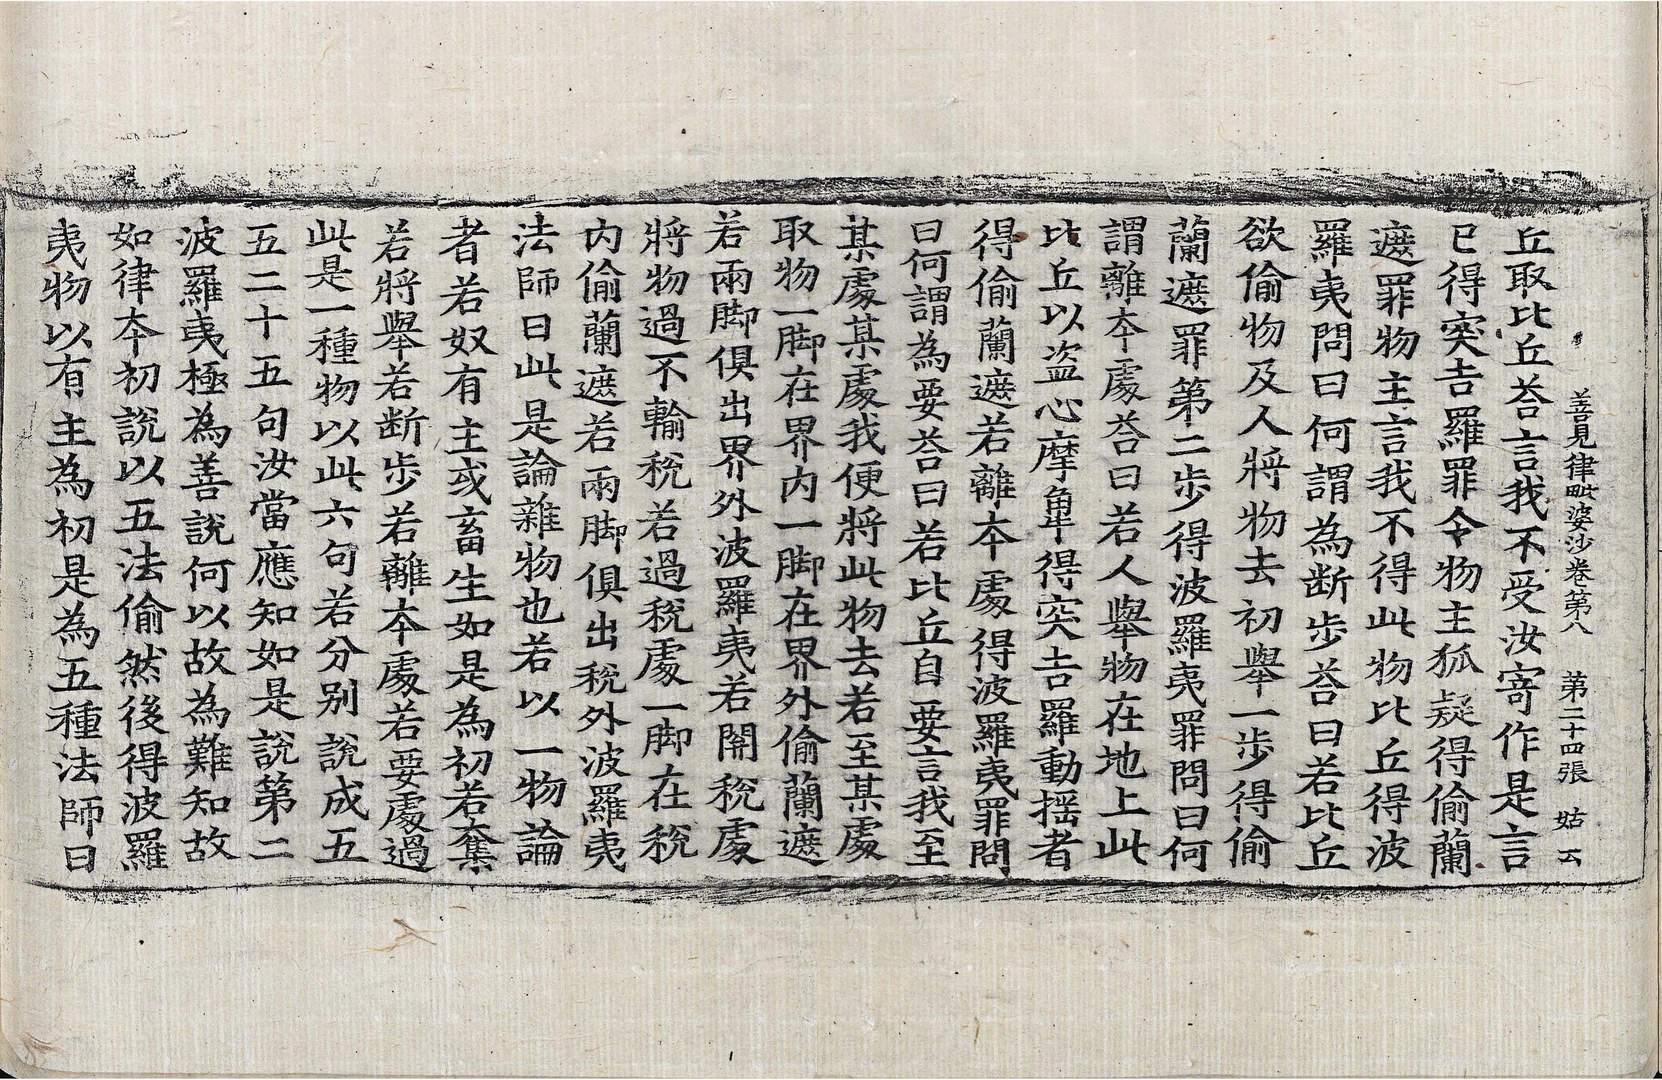 善見律毗婆沙卷第八 第二十四張 姑 云
丘取比丘荅言我不受汝寄作是言
已得突吉羅罪令物主狐疑得偷蘭
遮罪物主言我不得此物比丘得波
羅夷問曰何謂為断步荅曰若比丘
欲偷物及人將物去初舉一步得偷
蘭遮罪第二步得波羅夷罪問曰何
謂離夲處荅曰若人舉物在地上此
比丘以盗心摩𩋾得突吉羅動揺者
得偷蘭遮若離夲處得波羅夷罪問
曰何謂為要荅曰若比丘自要言我至
某處某處我便將此物去若至某處
取物一脚在界内一脚在界外偷蘭遮
若兩脚俱出界外波羅夷若關稅處
將物過不輸稅若過稅處一脚在稅
内偷蘭遮若兩脚俱出稅外波羅夷
法師曰此是論雜物也若以一物論
者若奴有主或畜生如是為初若奪
若將舉若断步若離夲處若要處過
此是一種物以此六句若分別說成五
五二十五句汝當應知如是說第二
波羅夷極為善說何以故為難知故
如律夲初說以五法偷然後得波羅
夷物以有主為初是為五種法師曰